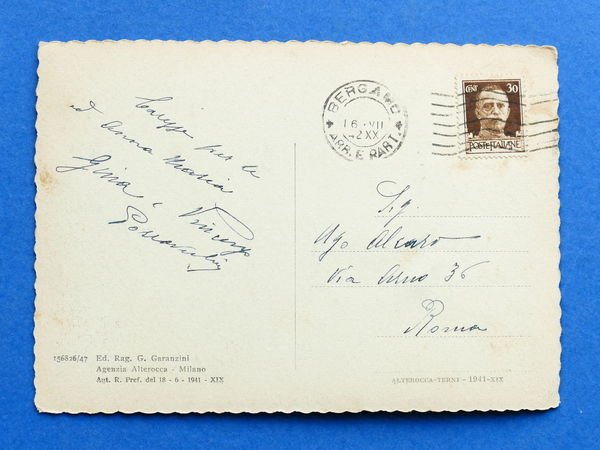 Carezze per te
ed Anna Maria
Gina e Vincenzo
BERGAMO
16 VII
42 XX
ARR. E PART.
CENT 30
POSTE ITALIANE
Sig.
Ugo Alcaro
Via Arno 36
Roma
156826/47 Ed. Rag. G. Garanzini
Agenzia Alterocca - Milano
Aut. R. Pref. del 18 - 6 - 1941 - XIX
ALTEROCCA-TERNI - 1941-XIX